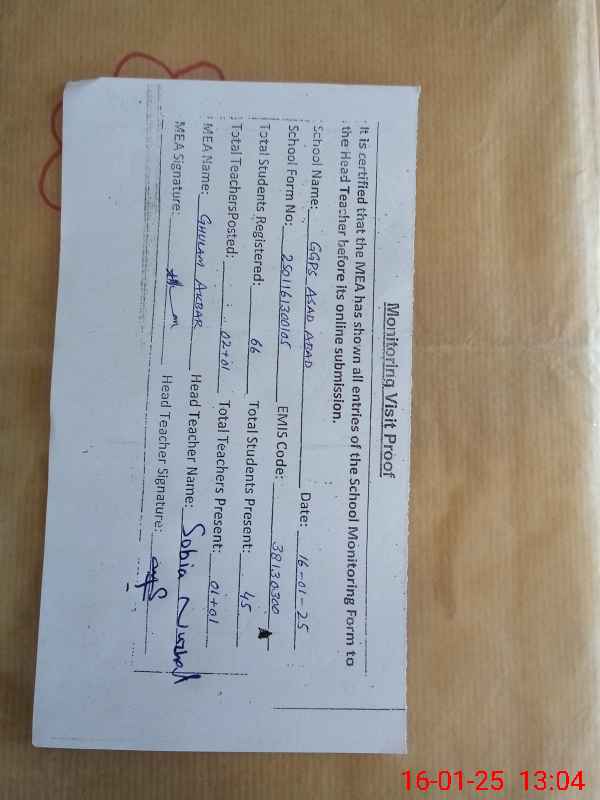 Monitoring Visit Proof
It is certified that the MEA has shown all entries of the School Monitoring Form to
the Head Teacher before its online submission.
School Name: GGPS ASAD ABAD Date: 16-01-25
School Form No: 2501161300105 EMIS Code: 38130300
Total Students Registered: 66 Total Students Present: 45
Total TeachersPosted: 02+01 Total Teachers Present: 01+01
MEA Name: GHULAM AKBAR Head Teacher Name: Sobia
MEA Signature: Head Teacher Signature:
16-01-25 13:04